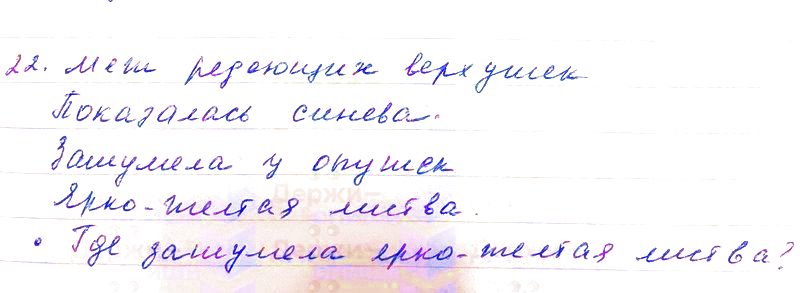 22. Меж редеющих верхушек
Показалась синева.
Зашумела у опушек
Ярко-желтая листва.
• Где зашумела ярко-желтая листва?